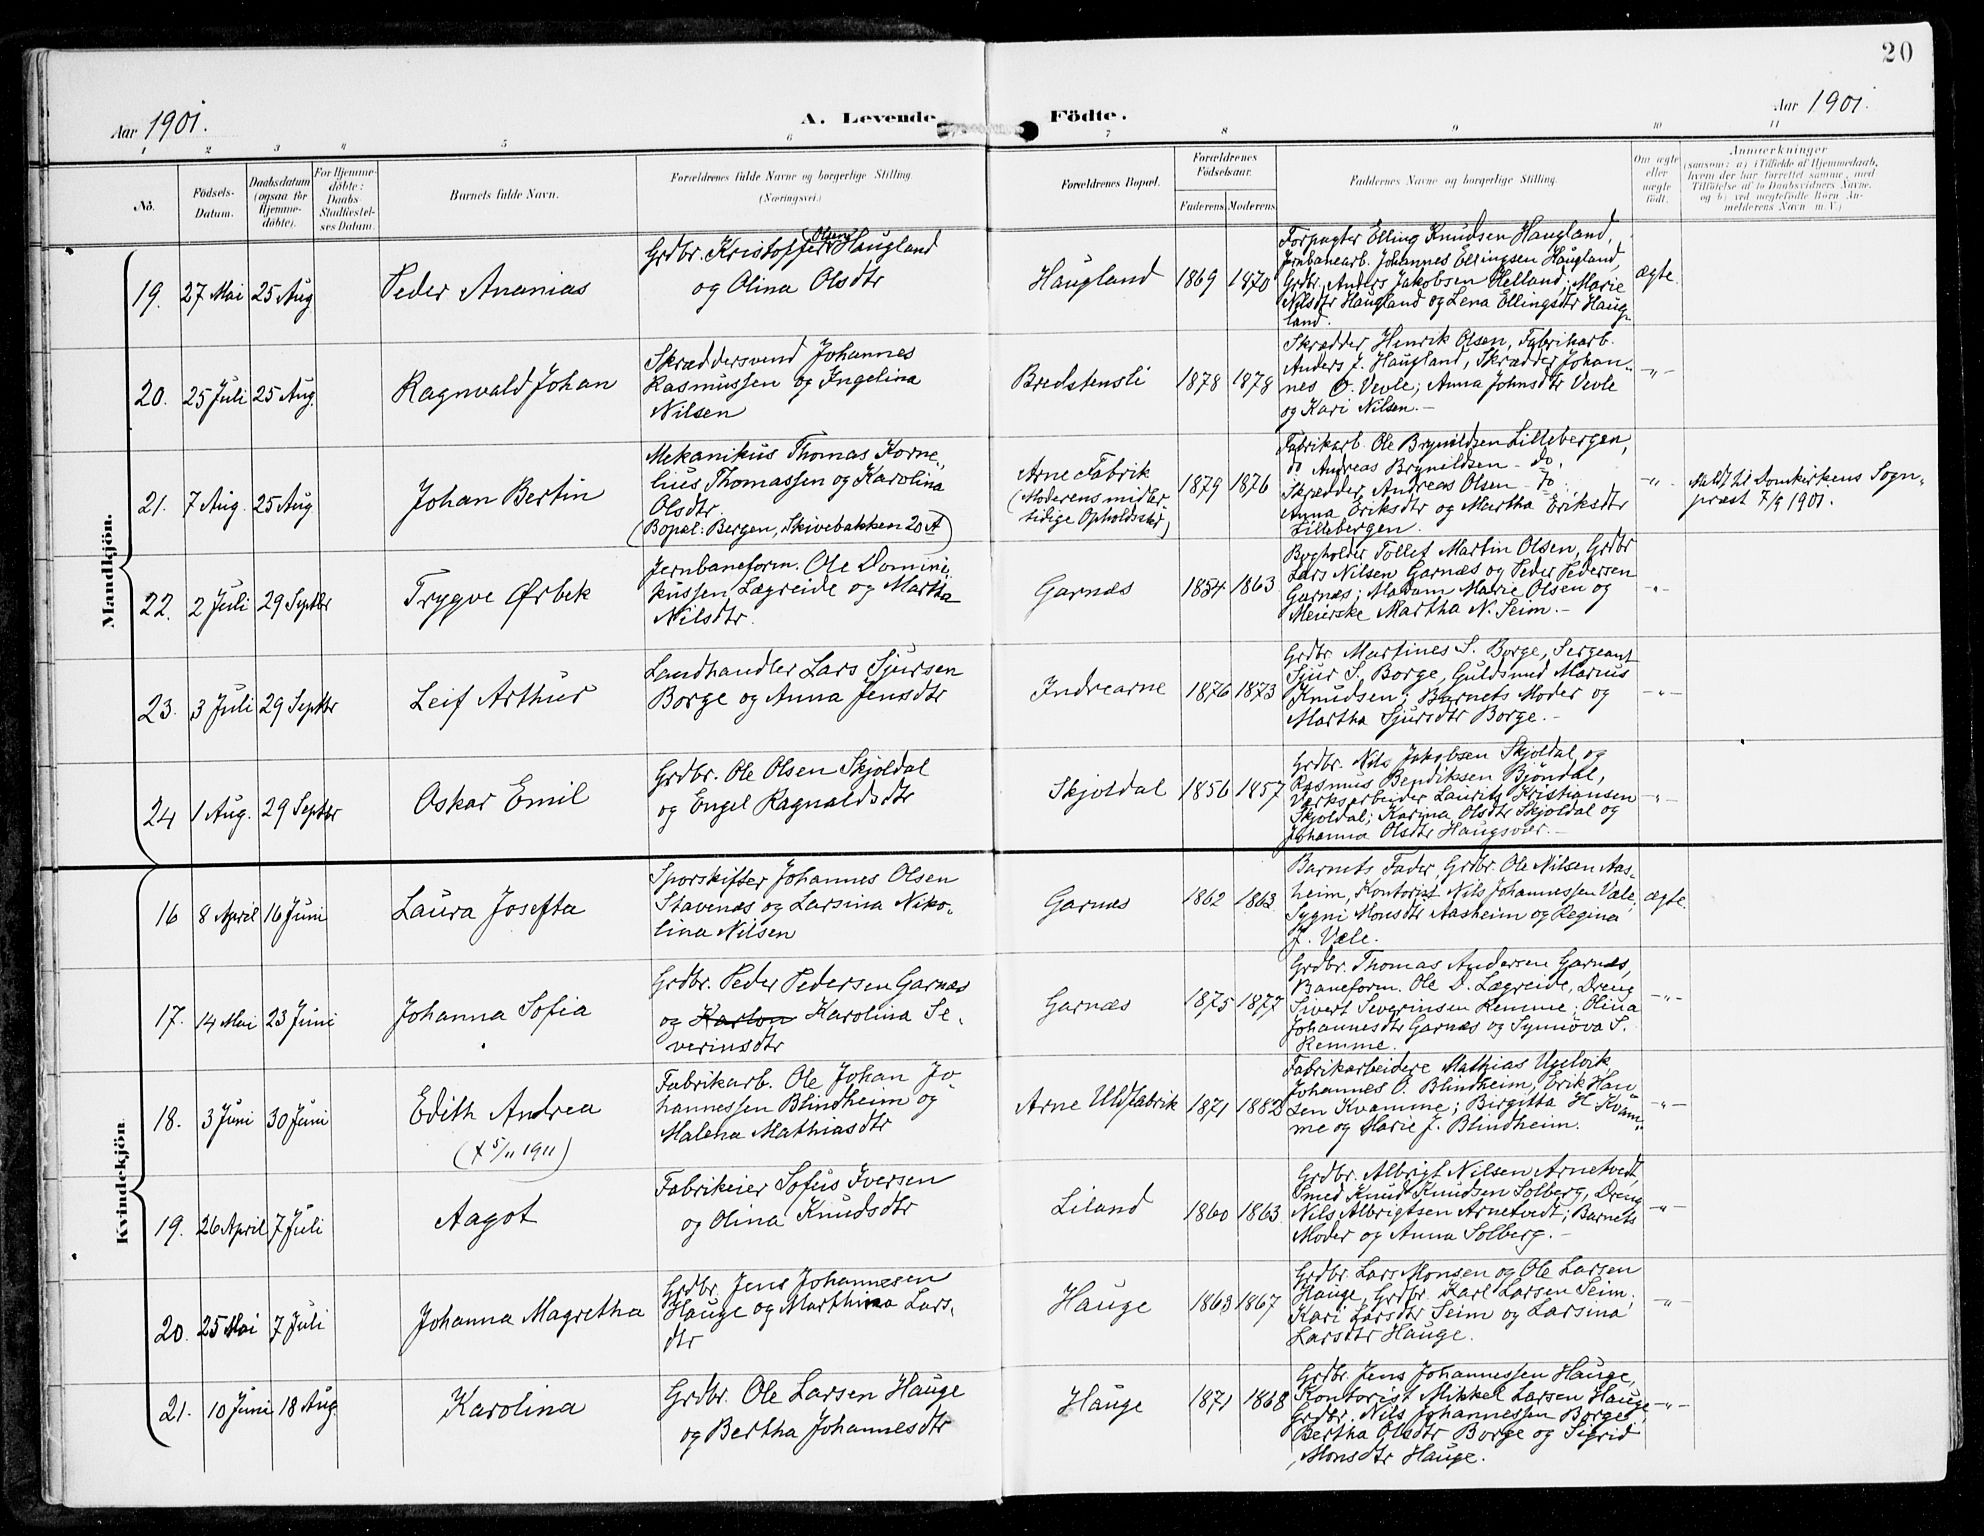 20
Aar 1901.
A. Levende Födte.
Aar 1901.
1 2 3 4 5 6 7 8 9 10 11
No.
Födsels-
Datum.
Daabsdatum
(ogsaa for
Hjemme-
döbte).
For Hjemme-
döbte:
Daabs-
Stadfæstel-
ses Datum.
Barnets fulde Navn.
Forældrenes fulde Navne og borgerlige Stilling
(Næringsvei.)
Forældrenes Bopæl.
Forældrenes
Födselsaar.
Faderens. Moderens.
Faddernes Navne og borgerlige Stilling.
Om ægte
eller
uægte
födt.
Anmærkninger
(saasom: a) i Tilfælde af Hjemmedaab,
hvem der har forrettet samme, med
Tilföielse af to Daabsvidners Navne,
og b) ved uægtefödte Börn An-
melderens Navn m. V.)
Mandkjön.
19. 27 Mai 25 Aug
Peder Ananias
Grdbr. Kristoffer Olsen Haugland
og Olina Olsdtr
Haugland 1869 1870
Forpagter Elling Knudsen Haugland,
Jernbanearb. Johannes Ellingsen Haugland,
Grdbr. Anders Jakobsen Helland; Marie
Nilsdtr Haugland og Lena Ellingsdtr Haug-
land.
ægte.
20. 25 Juli 25 Aug.
Ragnvald Johan
Skræddersvend Johannes
Rasmussen og Ingelina
Nilsen
Bredstensli 1878 1878
Skrædder Henrik Olsen, Fabrikarb.
Anders J. Haugland, Skrædder Johan-
nes O. Vevle; Anna Johnsdtr Vevle
og Kari Nilsen.-
-"-
21. 7 Aug. 25 Aug
Johan Bertin
Mekanikus Thomas Korne-
lius Thomassen og Karolina
Olsdtr.
(Bopæl: Bergen, Skivebakken 20 A)
Arne Fabrik
(Moderens midler-
tidige Opholdssted)
1879 1876
Fabrikarb. Ole Brynildsen Lillebergen,
do Andreas Brynildsen - do,
Skrædder Andreas Olsen - do;
Anna Eriksdtr og Martha Eriksdtr
Lillebergen.
-"-
Meldt til Domkirkens Sogne-
præst 7/9 1901.
22. 2 Juli 29 Septbr
Trygve Ørbek
Jernbaneform. Ole Domini-
kussen Lægreide og Martha
Nilsdtr.
Garnæs 1854 1863
Bogholder Tollef Martin Olsen, Grdbr
Lars Nilsen Garnæs og Peder Pedersen
Garnæs; Madam Marie Olsen og
Meierske Martha N. Seim.-
-"-
23. 3 Juli 29 Septbr
Leif Arthur
Landhandler Lars Sjursen
Borge og Anna Jensdtr
Indrearne 1876 1873
Grdbr Martines S. Borge, Sergeant
Sjur S. Borge, Guldsmed Marius
Knudsen; Barnets Moder og
Martha Sjursdtr Borge.-
-"-
24 1 Aug. 29 Septbr
Oskar Emil
Grdbr. Ole Olsen Skjoldal
og Engel Ragnaldsdtr
Skjoldal 1856 1857
Grdbr. Nils Jakobsen Skjoldal og
Rasmus Bendiksen Bjöndal,
Værksarbeider Lauritz Kristiansen
Skjoldal; Karina Olsdtr Skjoldal og
Johanna Olsdtr Haugsvær.-
-"-
Kvindekjön.
16 8 April 16 Juni
Laura Josefta
Sporskifter Johannes Olsen
Stavenæs og Larsina Niko-
lina Nilsen
Garnæs 1862 1863
Barnets Fader, Grdbr. Ole Nilsen Aas-
heim, Kontorist Nils Johannessen Væle,
Sygni Monsdtr Aasheim og Regina
J. Væle.
ægte.
17. 14 Mai 23 Juni
Johanna Sofia
Grdbr. Peder Pedersen Garnæs
og Karolina Se-
verinsdtr
Garnæs 1875 1877
Grdbr. Thomas Andersen Garnæs,
Baneform. Ole D. Lægreide, Dreng
Sivert Severinsen Remme; Olina
Johannesdtr Garnæs og Synnöva S.
Remme.
-"-
18. 3 Juni 30 Juni
Edith Andrea
(† 5/11 1911)
Fabrikarb. Ole Johan Jo-
hannessen Blindheim og
Malena Mathiasdtr
Arne Uldfabrik 1871 1882
Fabrikarbeidere Mathias
Johannes O. Blindheim, Erik Han-
sen Kvamme; Birgitta H. Kvam-
me og Marie J. Blindheim.
-"-
19. 26 April 7 Juli
Aagot
Fabrikeier Sofus Iversen
og Olina Knudsdtr
Liland 1860 1863
Grdbr. Albrigt Nilsen Arnetvedt,
Smed Knud Knudsen Solberg, Dreng
Nils Albrigtsen Arnetvedt; Barnets
Moder og Anna Solberg.-
-"-
20. 25 Mai 7 Juli
Johanna Magretha
Grdbr. Jens Johannesen
Hauge og Marthina Lars-
dtr
Hauge 1863 1867
Grdbr. Lars Monsen og Ole Larsen
Hauge, Grdbr. Karl Larsen Seim;
Kari Larsdtr Seim og Larsina
Larsdtr Hauge.
-"-
21. 10 Juni 18 Aug.
Karolina
Grdbr. Ole Larsen Hauge
og Bertha Johannesdtr
Hauge 1871 1868
Grdbr. Jens Johannessen Hauge,
Kontorist Mikkel Larsen Hauge,
Grdbr. Nils Johannessen Borge;
Bertha Olsdtr Borge og Sigrid
Monsdtr Hauge.
-"-